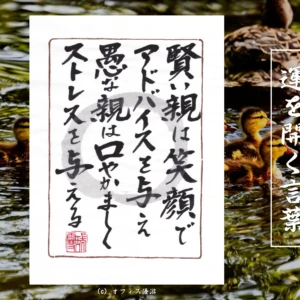 賢い親は笑顔で
アドバイスを与え
愚な親は口やかましく
ストレスを与える
運を開く言葉
(c) オフィス湧沼